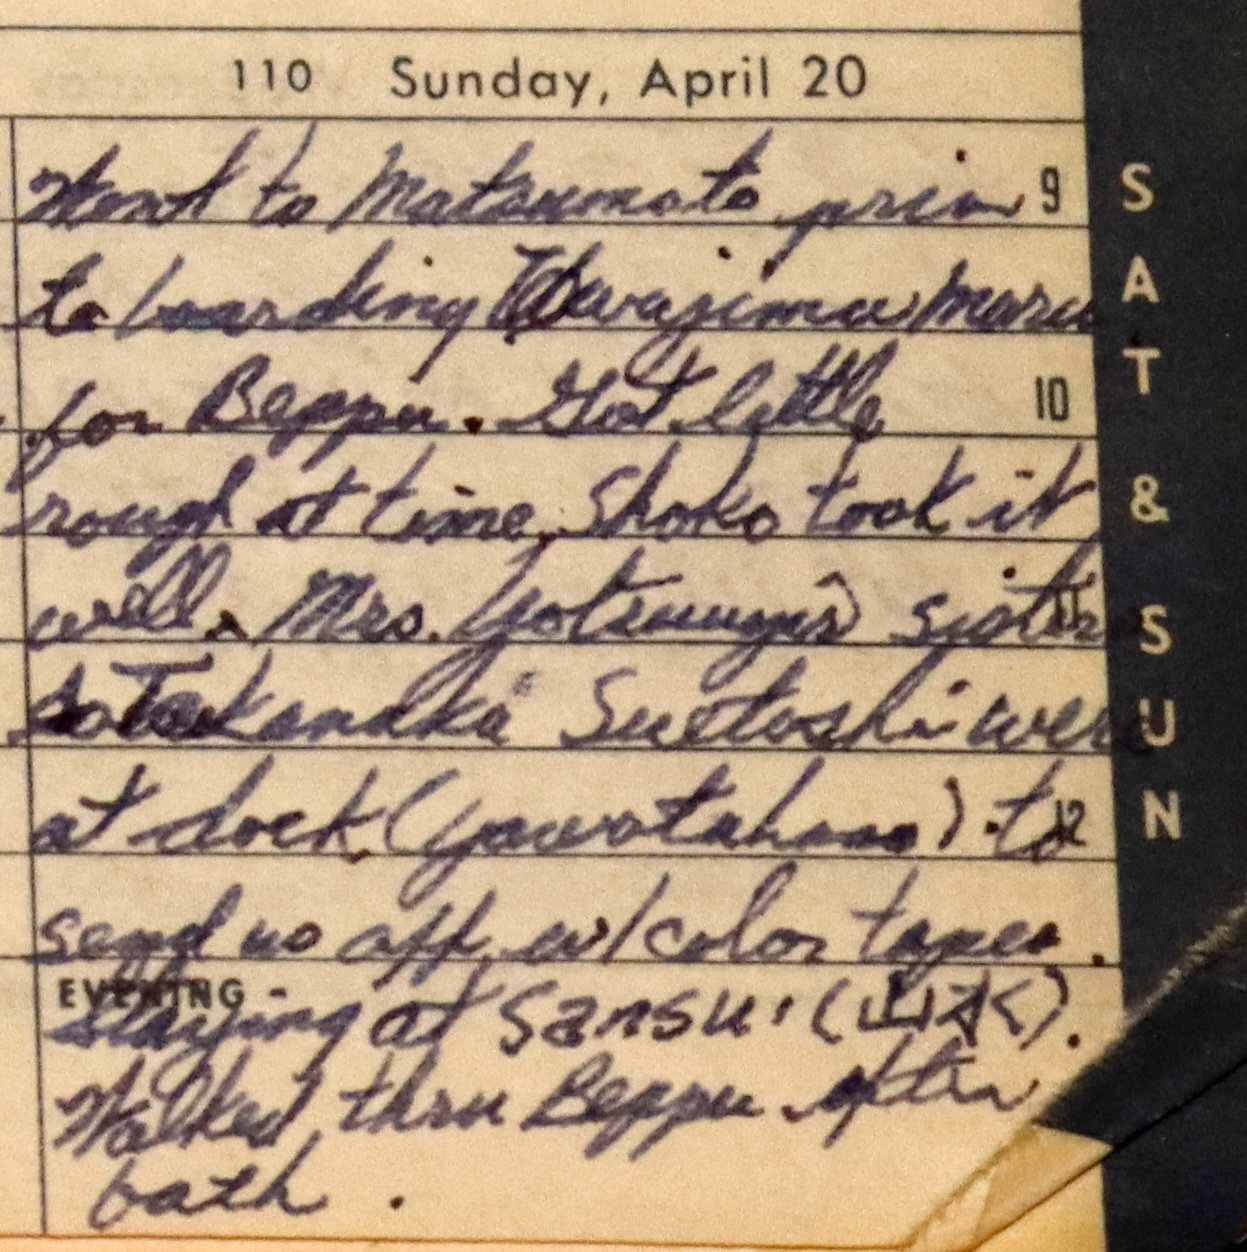 110 Sunday, April 20
Went to Matsumoto prior 9
to boarding Maru
for Beppu. Got little 10
rough at time. Shoko took it
well. Mrs. sister 11
Takanaka Suetoshi were
at dock (Yawatahama) to 12
send us off w/color tapes.
EVENING -
Staying at Sansui (山水).
Walked thru Beppu after
bath.
SAT & SUN